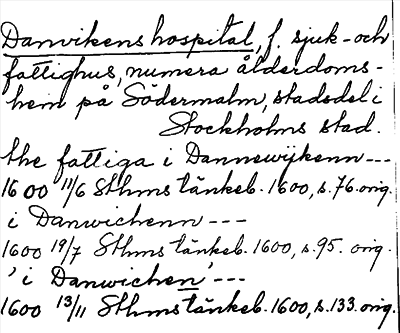 Danvikens hospital, f. sjuk- och
fattighus, numera ålderdoms-
hem på Södermalm, stadsdel i
Stockholms stad.
the fattiga i Dannewijkenn ---
1600 11/6 Sthms tänkeb. 1600, s. 76. orig.
i Danwichenn ---
1600 19/7 Sthms tänkeb. 1600, s. 95. orig.
'i Danwichen' ---
1600 13/11 Sthms tänkeb. 1600, s. 133. orig.